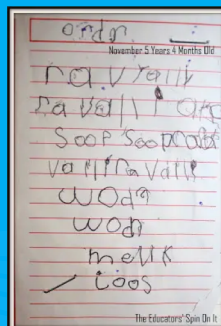 ordr
November 5 Years 4 Months Old
ravrally
ravall
Soop Soop
vallravall
woda
woda
melk
coos
The Educators' Spin On It